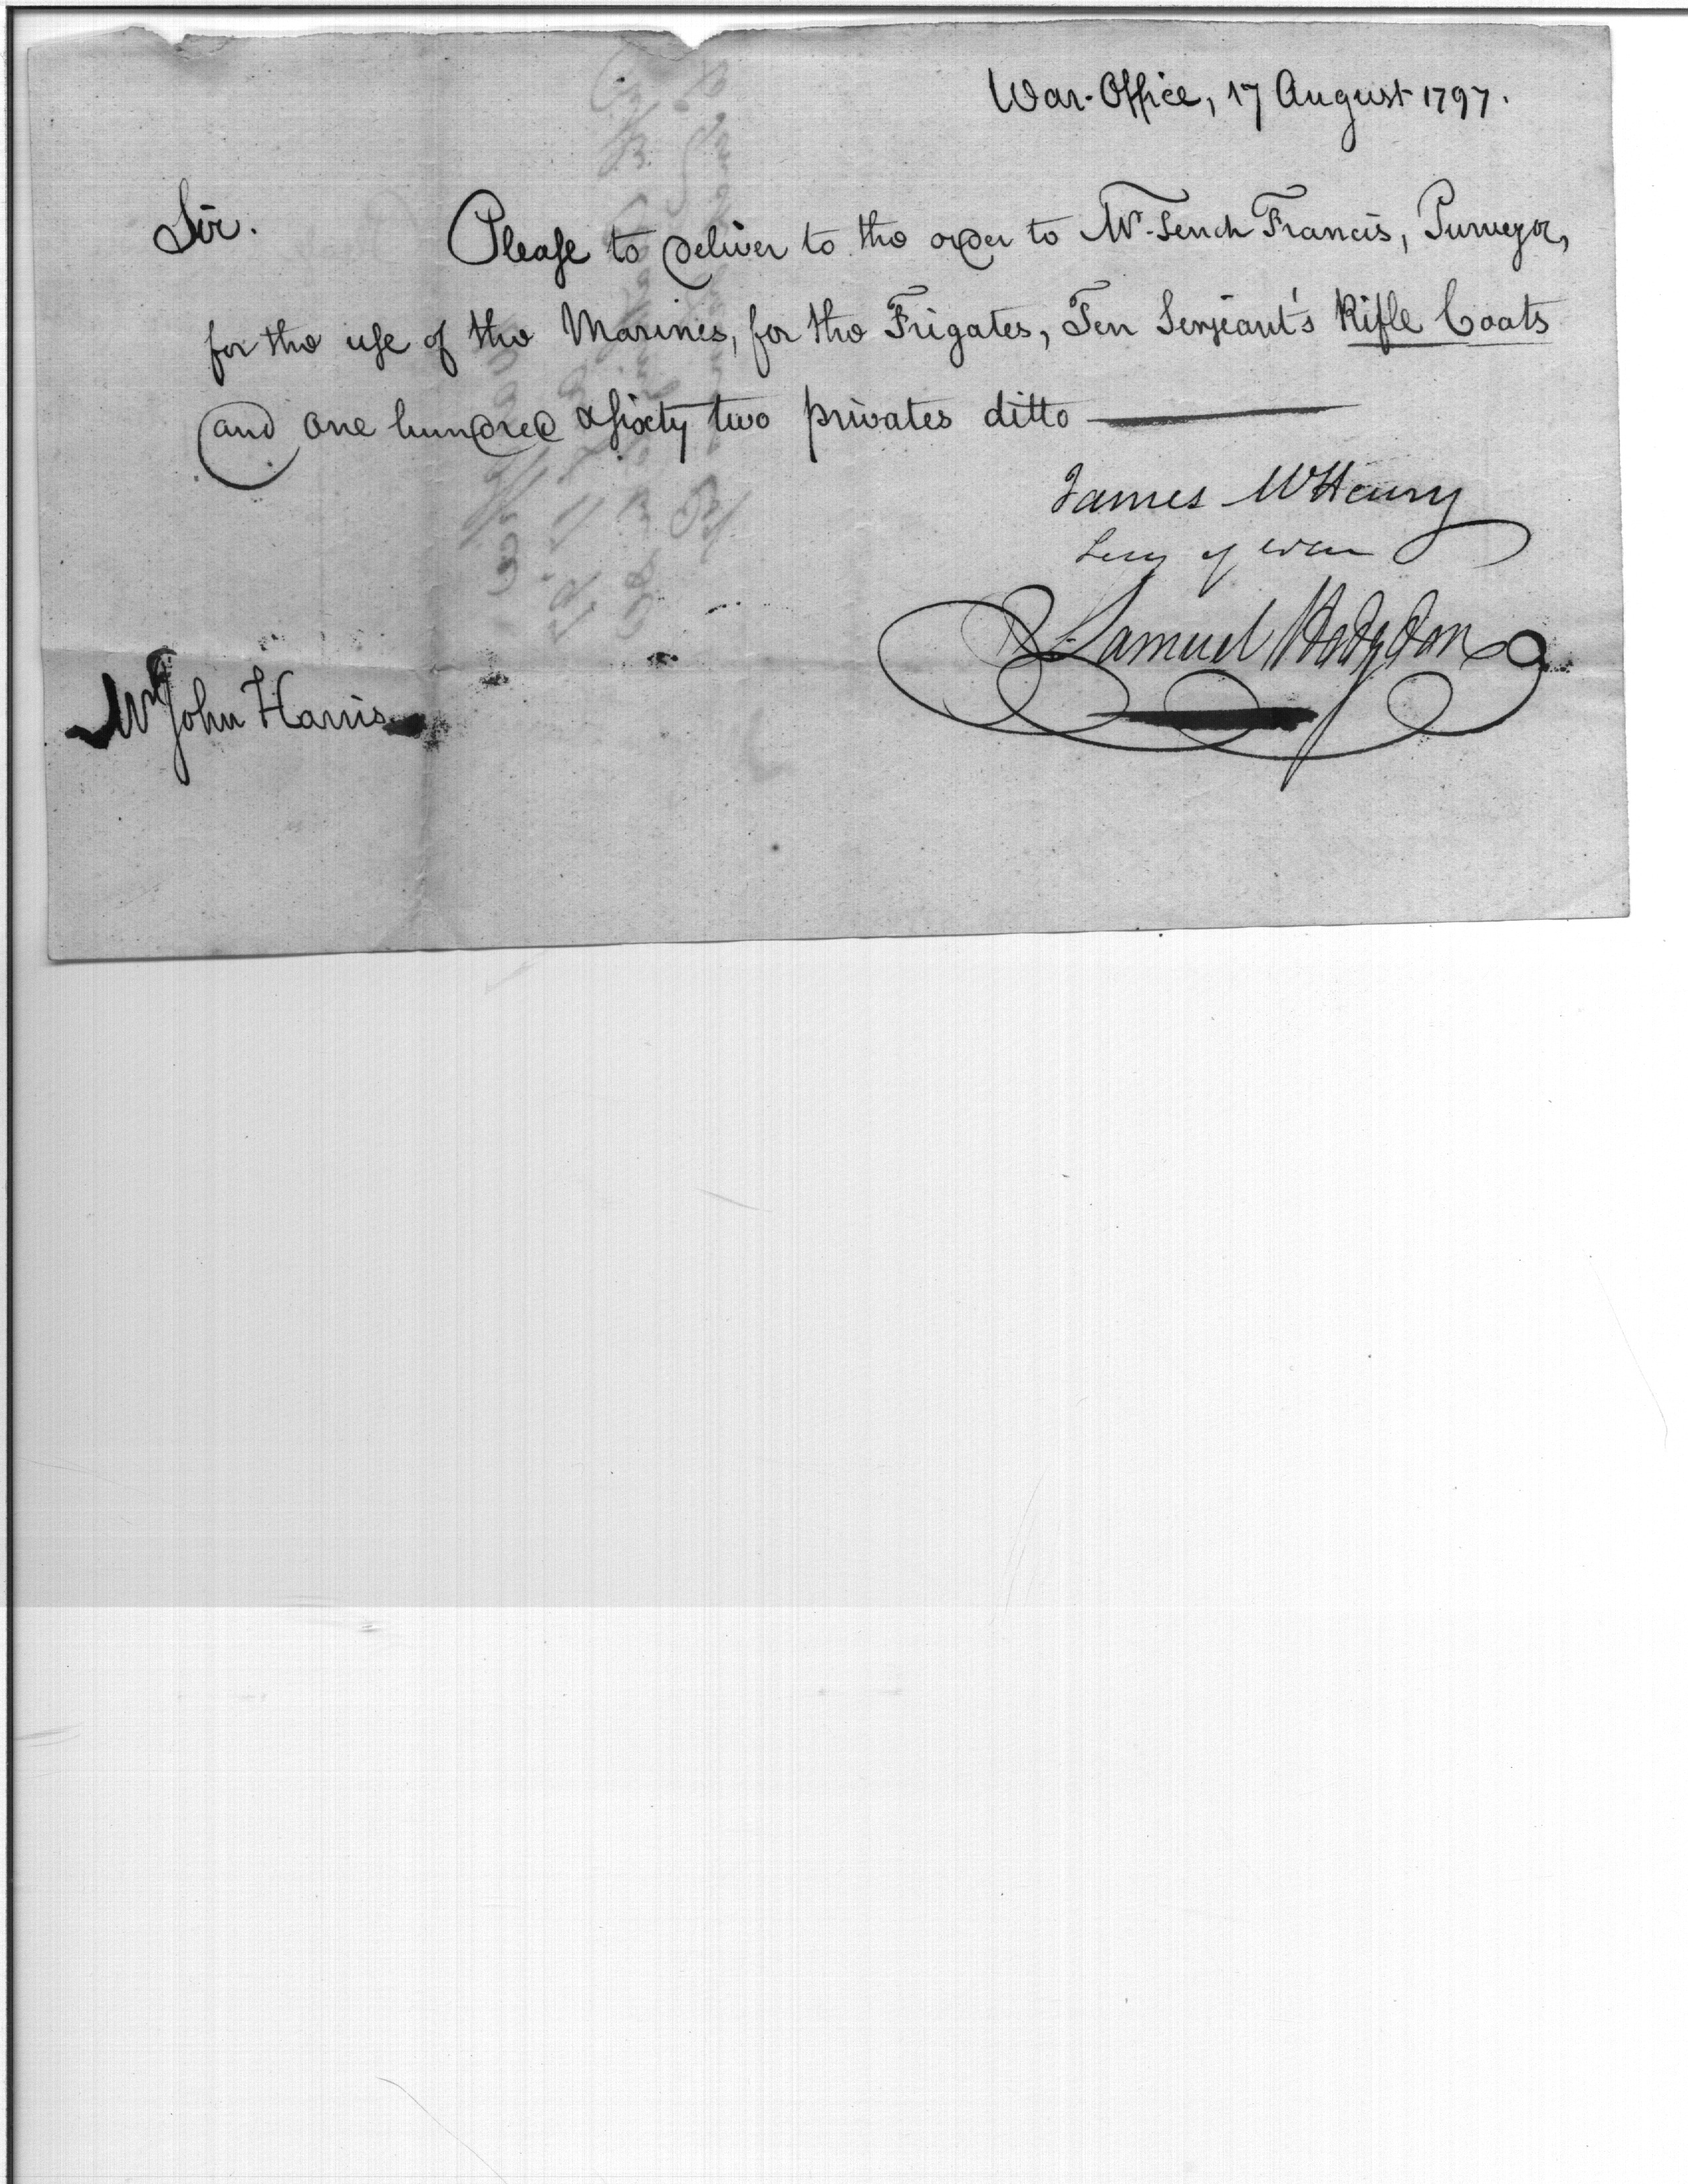 War-Office, 17 August 1797.
Sir.
Please to deliver to the order to Mr. Tench Francis, Purveyor,
for the use of the Marines, for the Frigates, Ten Serjeant's Rifle Coats
and one hundred & sixty two privates ditto
James McHenry
Secy of War
Samuel Hodgdon
Mr John Harris